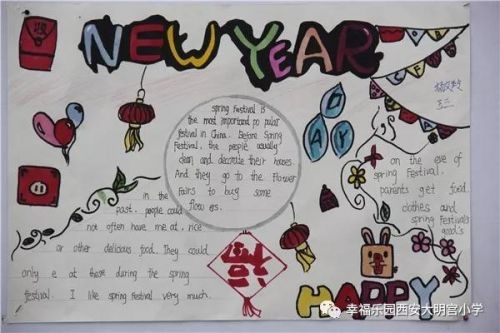 NEW YEAR
Spring Festival is
the most important po pular
festival in China. Before Spring
Festival, the people usually
clean and decorate their houses.
And they go to the Flower
Fairs to buy some
flow ers.
DAY
on the eve of
spring Festival,
parents get food
clothes and
spring Festival's
good's
in the
past, people could
not often have me at, rice
or other delicious food. They could
only e at these during the spring
festival. I like spring festival very much.
福
HAPPY
幸福乐园西安大明宫小学